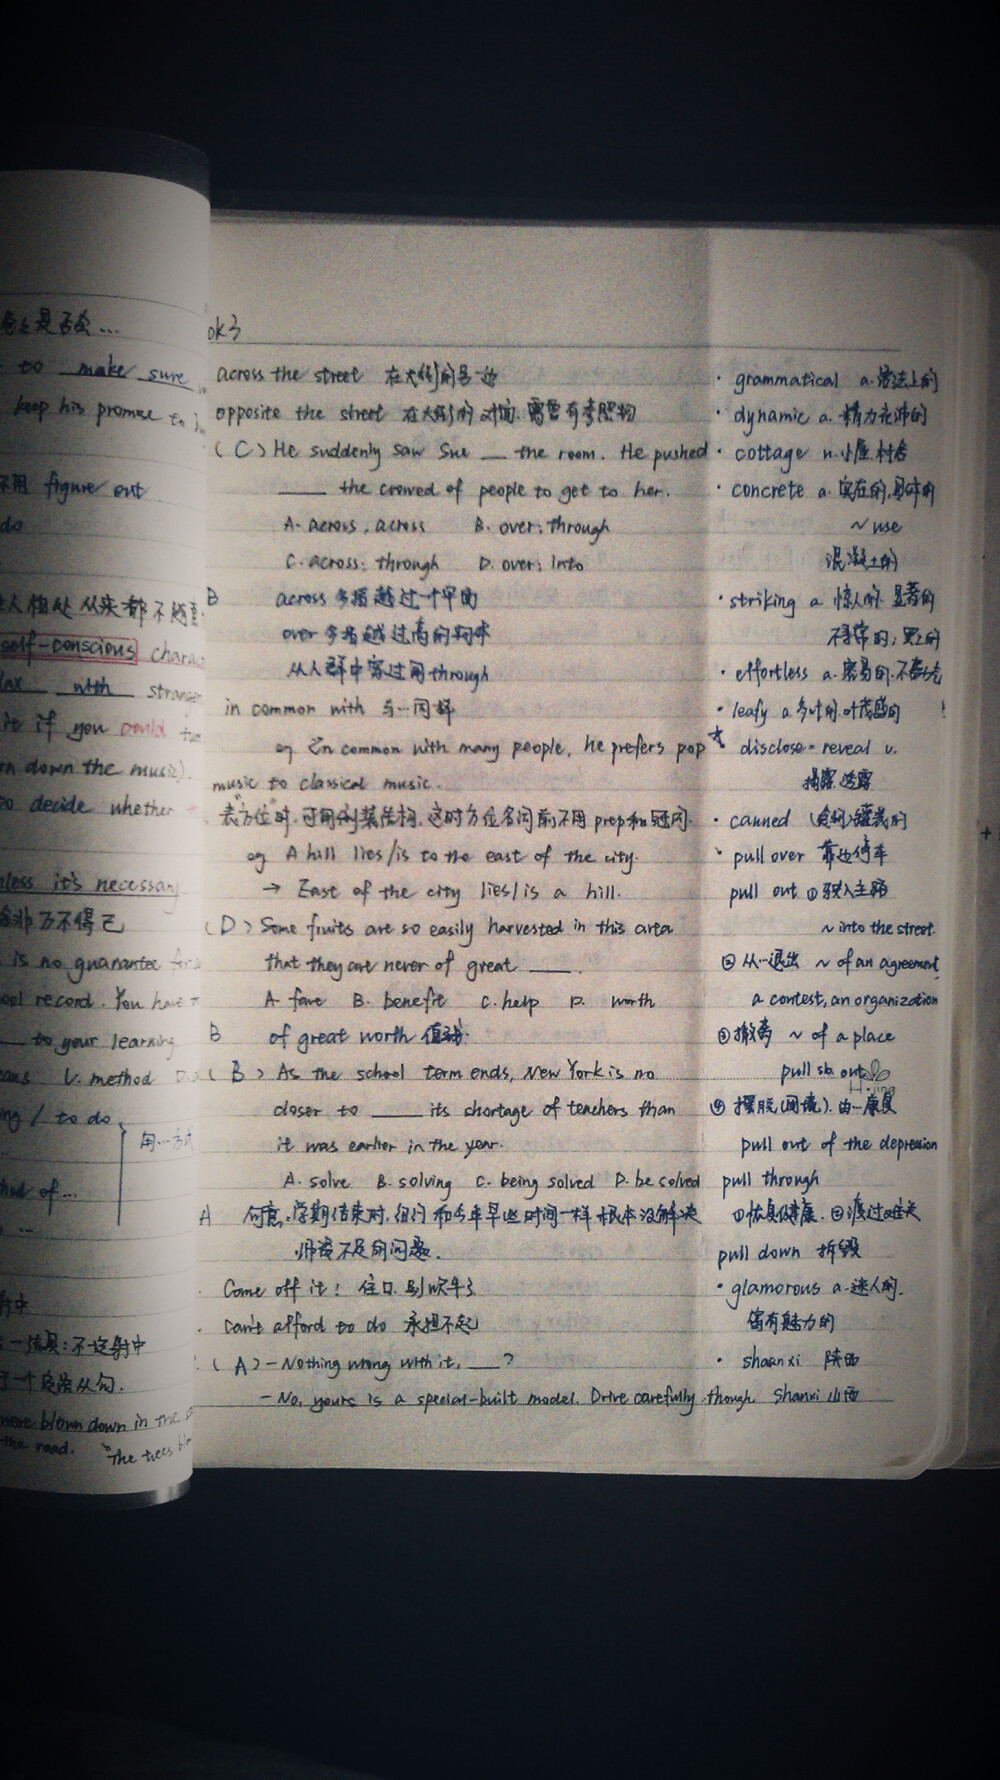 ok3
across the street 在大街的另一边
opposite the street 在大街的对面.需要有参照物
(C) He suddenly saw Sue __ the room. He pushed
____ the crowed of people to get to her.
A. across, across B. over; through
C. across; through D. over; into
B across多指越过一个平面
over多指越过高的物体
从人群中穿过用through
in common with 与…同样
eg In common with many people, he prefers pop
music to classical music.
表"方位"时,可用倒装结构,这时方位名词前不用prep和冠词.
eg A hill lies/is to the east of the city.
→ East of the city lies/is a hill.
(D) Some fruits are so easily harvested in this area
that they are never of great ____.
A. fare B. benefit C. help D. worth
B of great worth 值钱
(B) As the school term ends, New York is no
closer to ____ its shortage of teachers than
it was earlier in the year.
A. solve B. solving C. being solved D. be solved
A 句意:学期结束时,纽约和今年早些时间一样根本没解决
师资不足的问题.
Come off it! 住口.别吹牛了
can't afford to do 承担不起
(A) - Nothing wrong with it, ___?
- No, yours is a special-built model. Drive carefully, though.
· grammatical a.语法上的
· dynamic a. 精力充沛的
· cottage n.小屋.村舍
· concrete a. 实在的,具体的
~ use
混凝土的
· striking a. 惊人的 显著的
不寻常的;罢工的
· effortless a. 容易的.不费力
· leafy a.多叶的.叶茂盛的 !
☆ disclose = reveal v.
揭露.透露
· canned (食物)罐装的
· pull over 靠边停车
pull out ①驶入主路
~ into the street.
②从…退出 ~ of an agreement,
a contest, an organization
③撤离 ~ of a place
pull sb. out
④摆脱(困境).由…康复
pull out of the depression
pull through
①恢复健康.②渡过难关
pull down 拆毁
· glamorous a.迷人的.
富有魅力的
· shaanxi 陕西
Shanxi 山西
是否会…
to make sure
keep his promise to
figure out
do
人相处从来都不随意
self-conscious charac
lax with strange
it if you could tu
rn down the music).
to decide whether
less it's necessary
除非万不得已
is no guarantee for
ool record. You have
to your learning
ans C. method D.
ng / to do
用…方
hod of…
…
射中
一结果:不一定射中
个定语从句.
were blown down in the
the road. "The trees